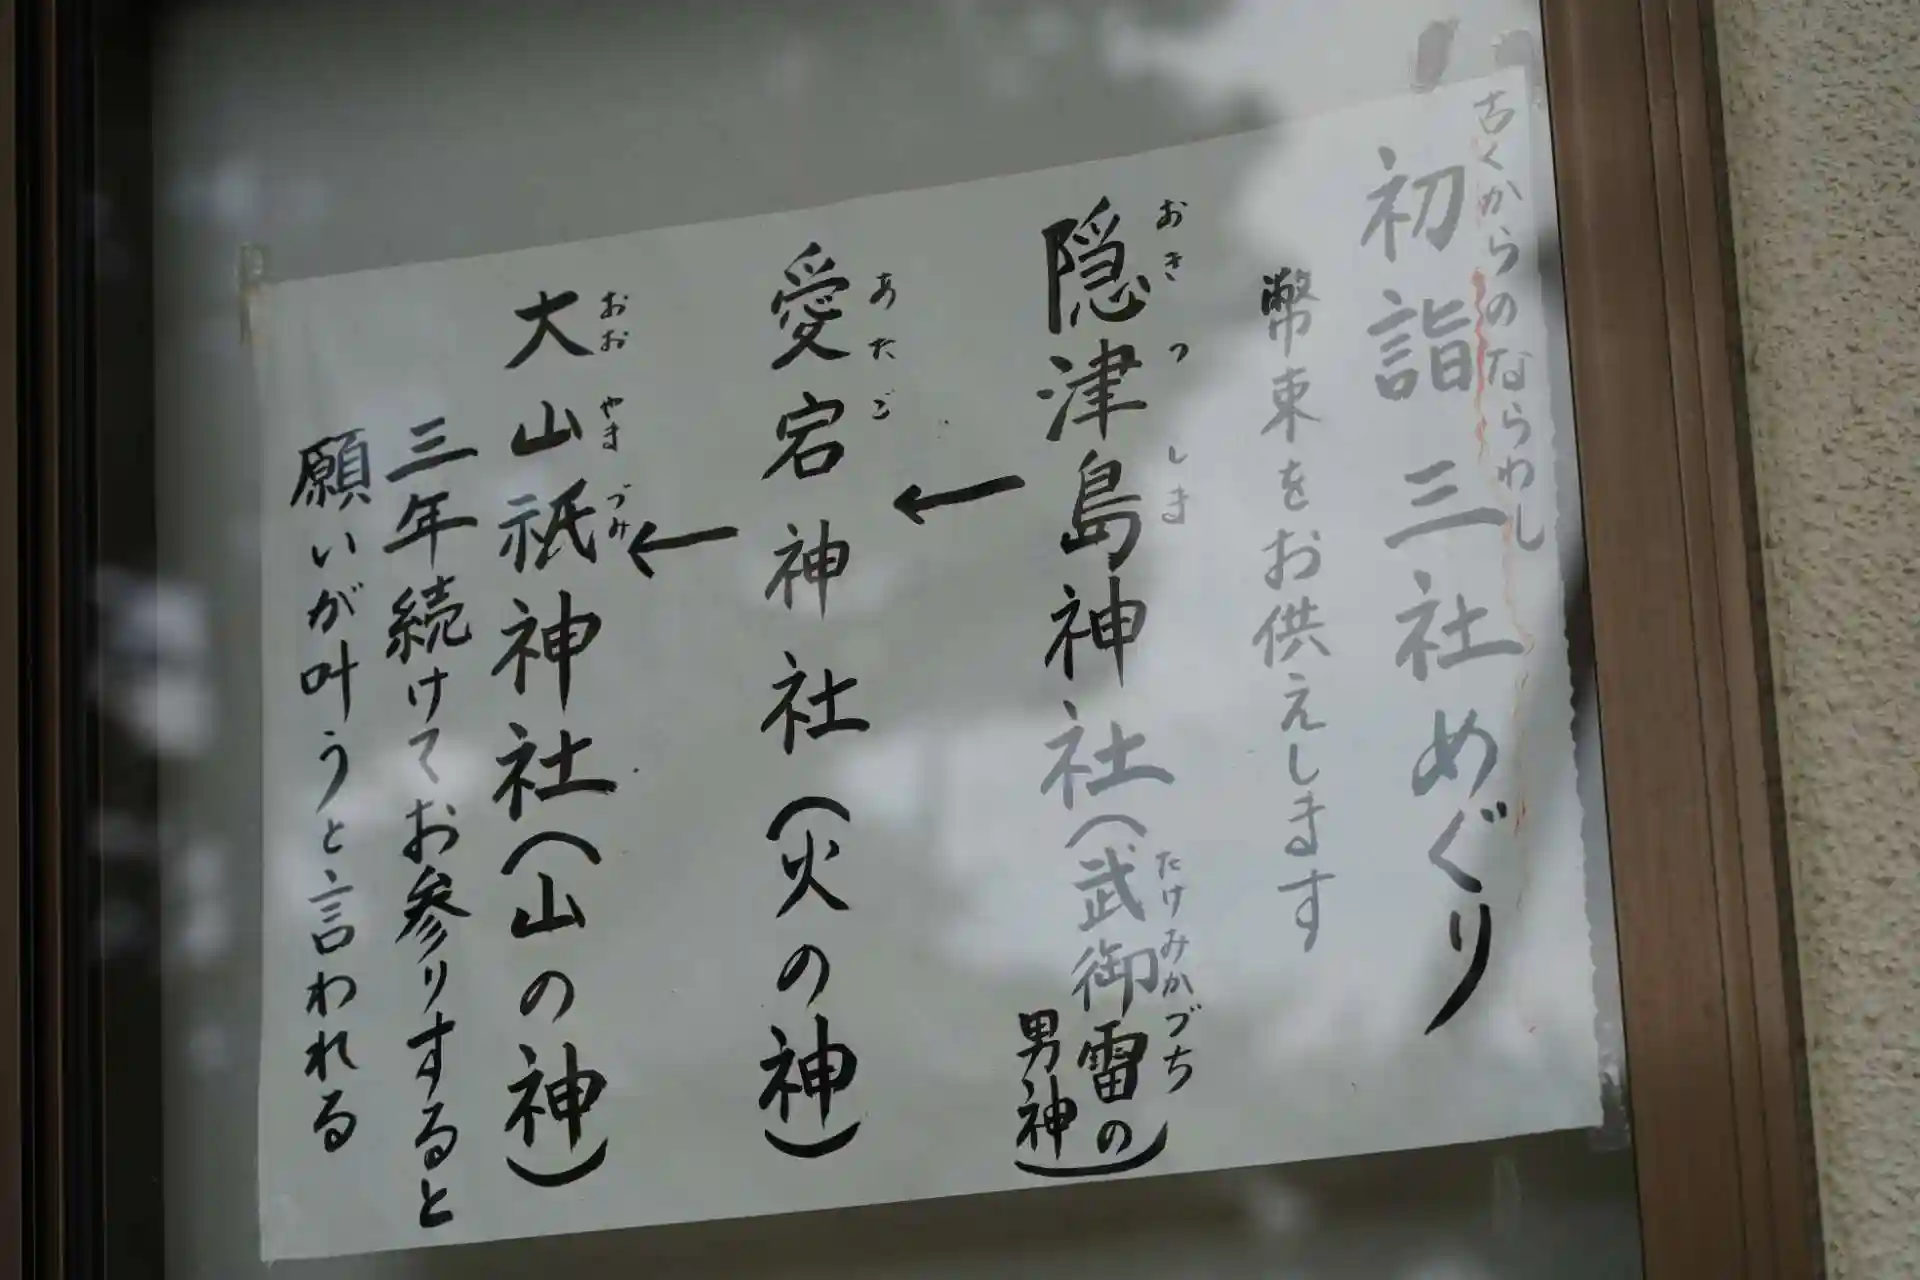 古くからのならわし
初詣 三社めぐり
幣束をお供えします
おきつしま
隠津島神社(武御雷の男神)
たけみかづち
←
あたご
愛宕神社(火の神)
←
おおやまづみ
大山祇神社(山の神)
三年続けてお参りすると
願いが叶うと言われる